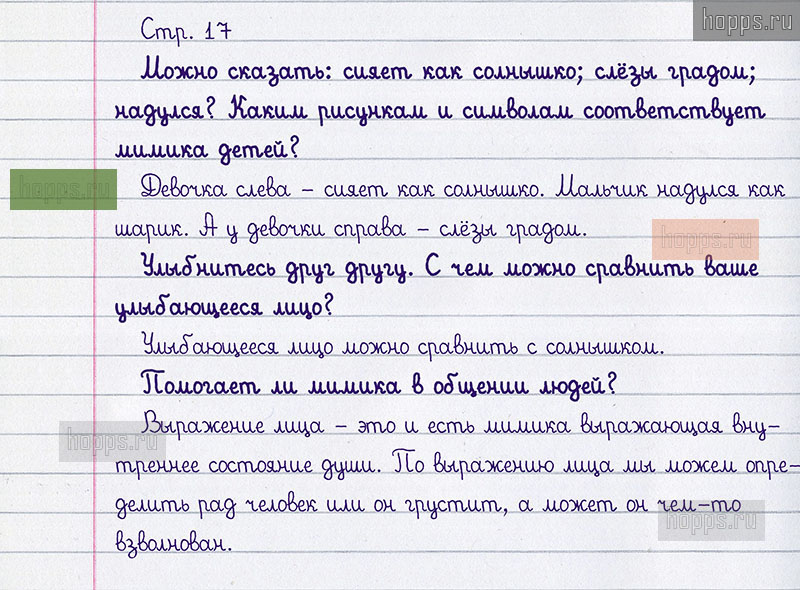 hopps.ru
Стр. 17
Можно сказать: сияет как солнышко; слёзы градом;
надулся? Каким рисункам и символам соответствует
мимика детей?
hopps.ru
Девочка слева – сияет как солнышко. Мальчик надулся как
шарик. А у девочки справа – слёзы градом.
hopps.ru
Улыбнитесь друг другу. С чем можно сравнить ваше
улыбающееся лицо?
Улыбающееся лицо можно сравнить с солнышком.
Помогает ли мимика в общении людей?
Выражение лица – это и есть мимика выражающая вну-
hopps.ru
треннее состояние души. По выражению лица мы можем опре-
делить рад человек или он грустит, а может он чем-то
hopps.ru
взволнован.